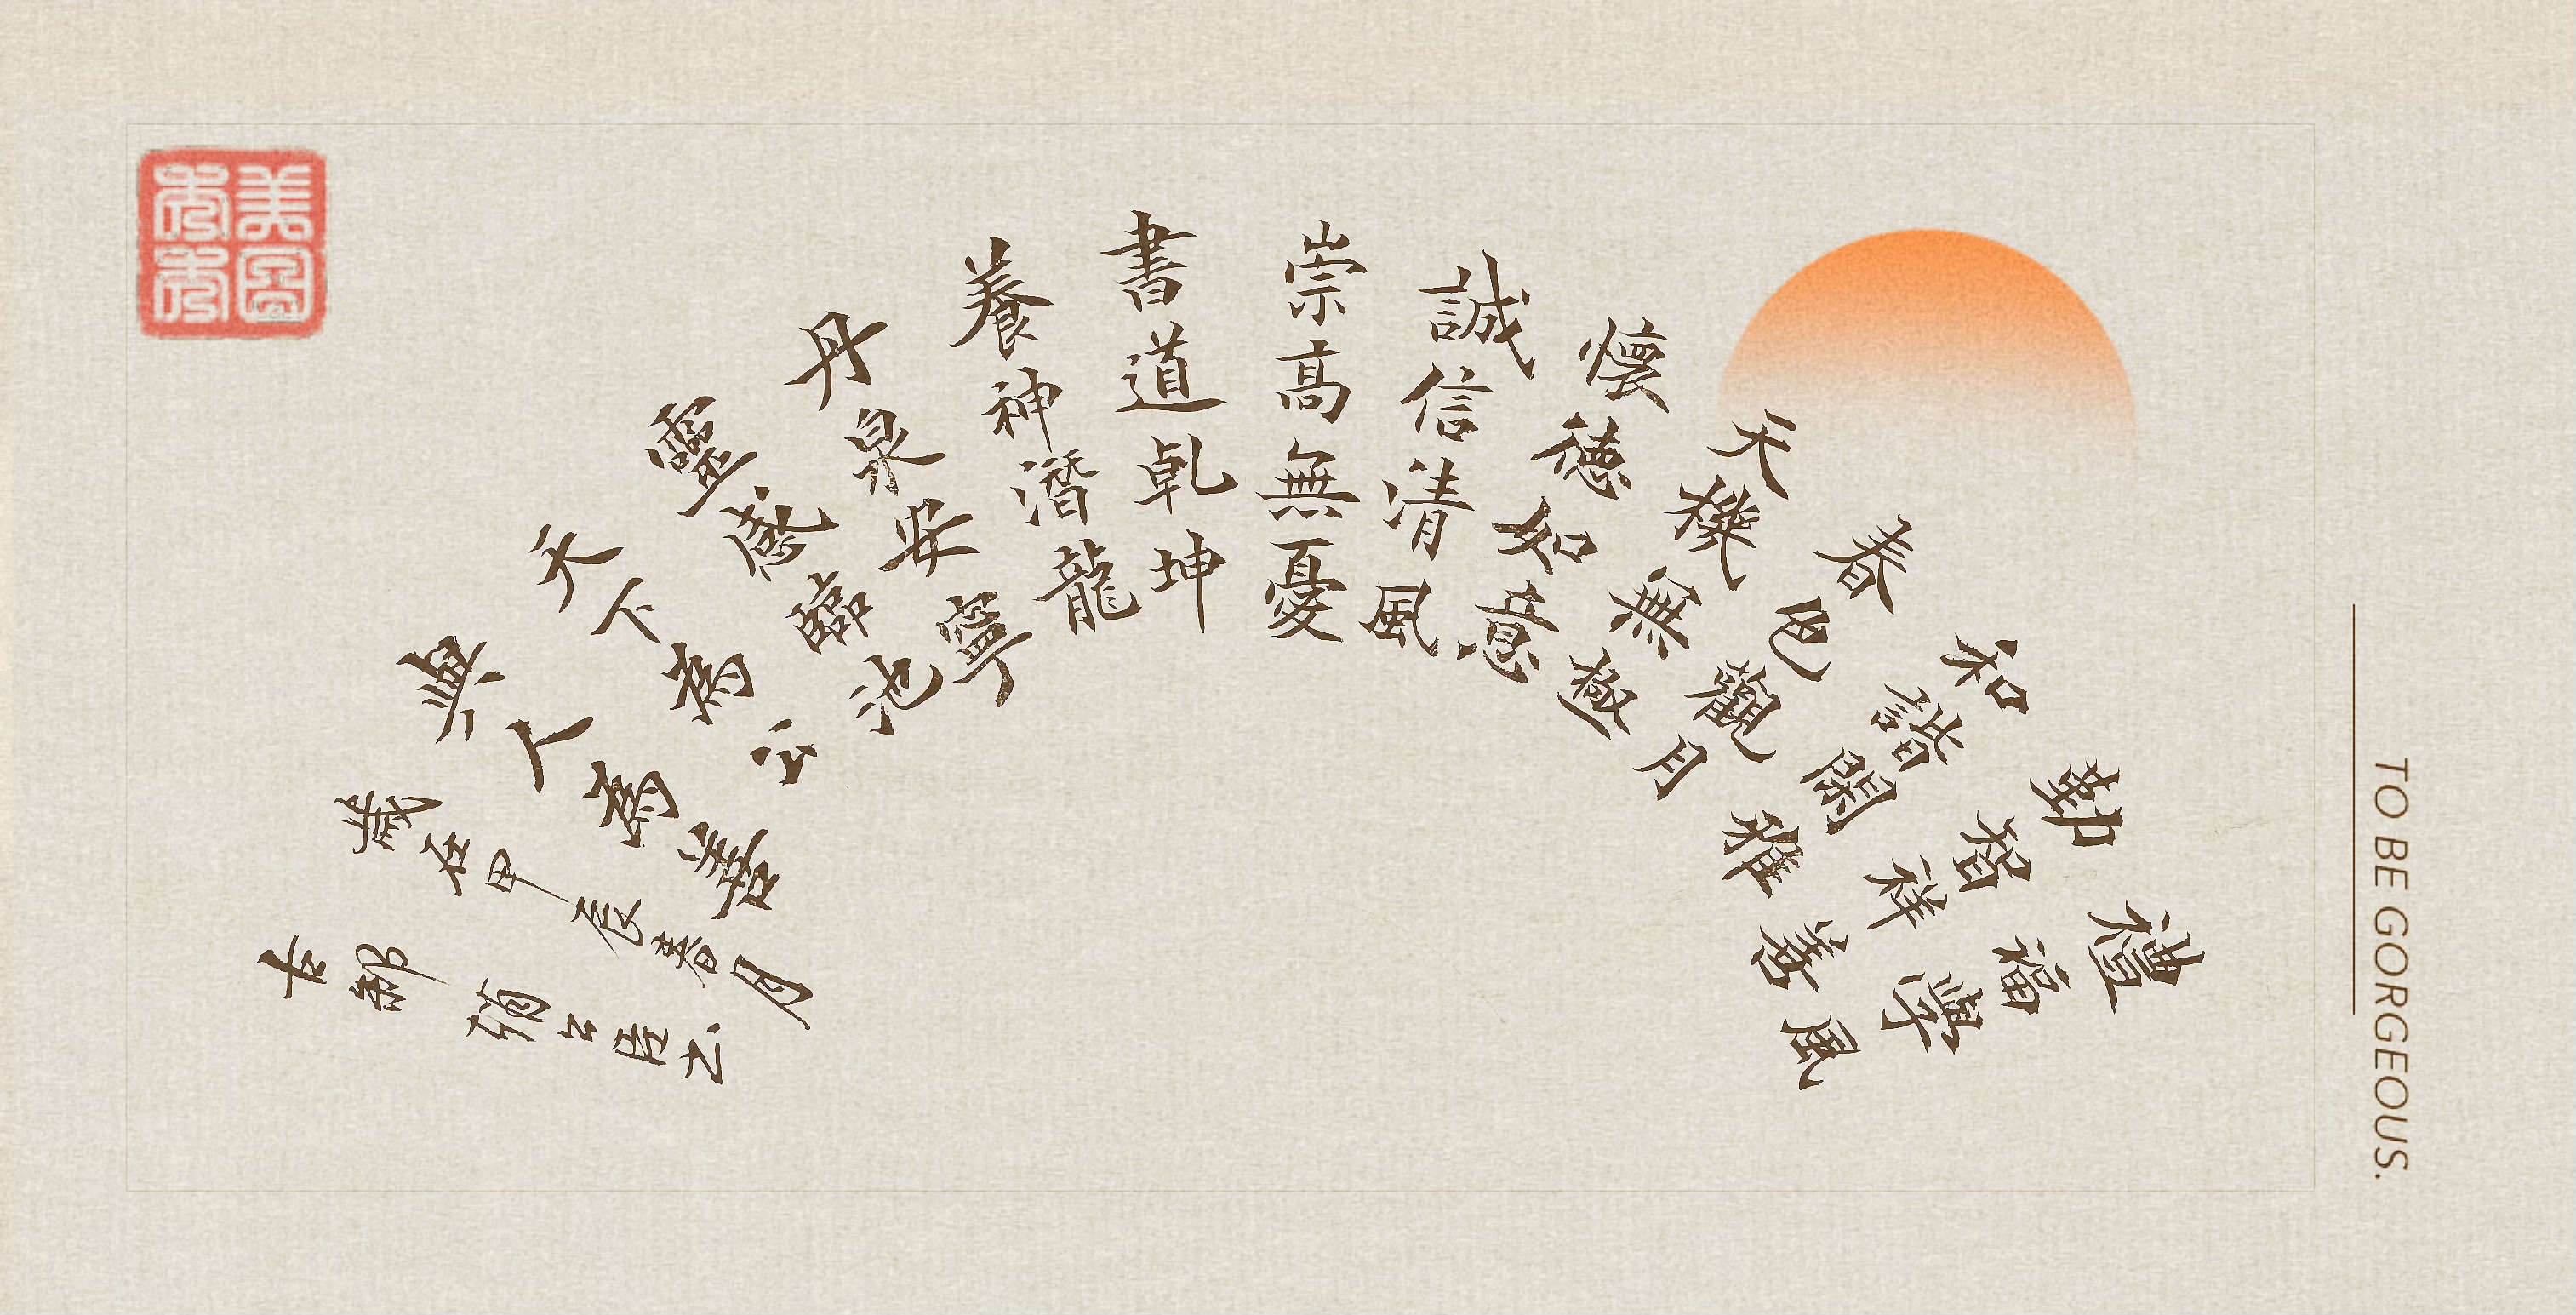 禮福學風
勤智祥善
和諧閑雅
春色觀月
天機無極
懷德如意
誠信清風
崇高無憂
書道乾坤
養神潛龍
丹泉安寧
靈感臨池
天下為公
與人為善
歲在甲辰春月
古鄒
美圖秀秀
TO BE GORGEOUS.